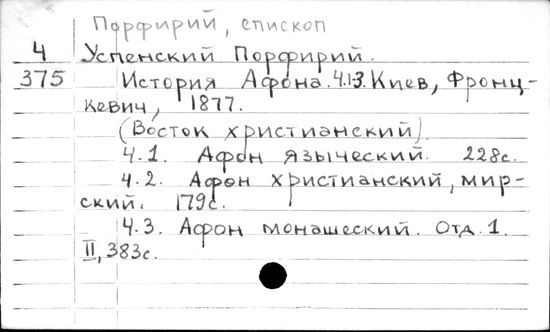 Порфирий, епископ
4 Успенский Порфирий.
375 История Афона. Ч.1-3. Киев, Фронц-
кевич, 1877.
(Восток христианский).
Ч.1. Афон языческий. 228с.
Ч.2. Афон христианский, мир-
ский. 179с.
Ч.3. Афон монашеский. Отд. 1.
II, 383с.